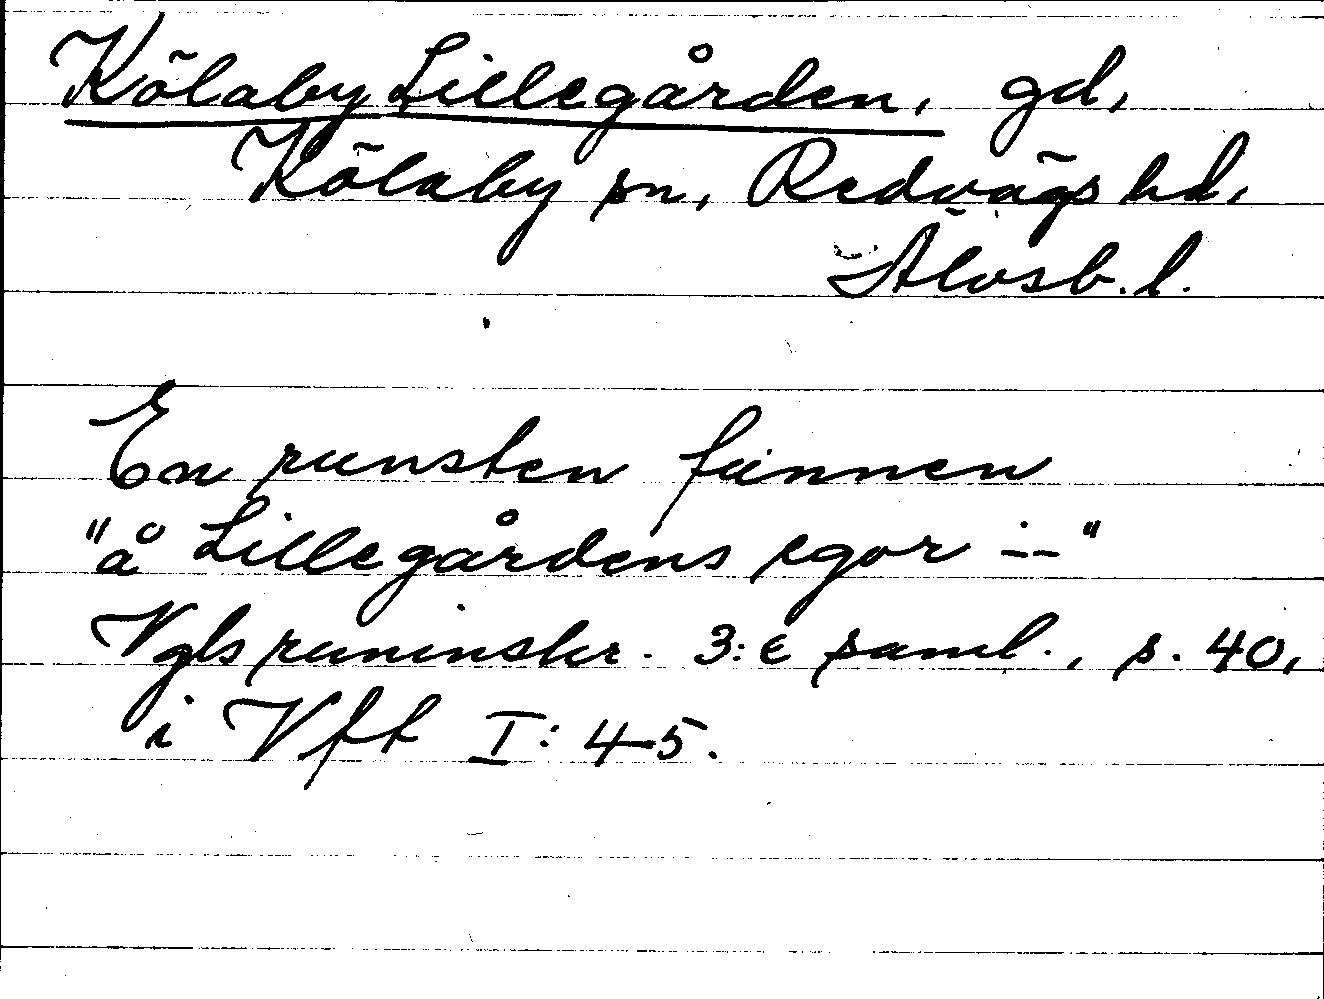 Kölaby Lillegården, gd,
Kölaby sn, Redvägs hd,
Älvsb. l.
En runsten funnen
"å Lillegårdens egor --"
Vgls runinskr. 3:e saml., s. 40,
i Vft I: 4-5.